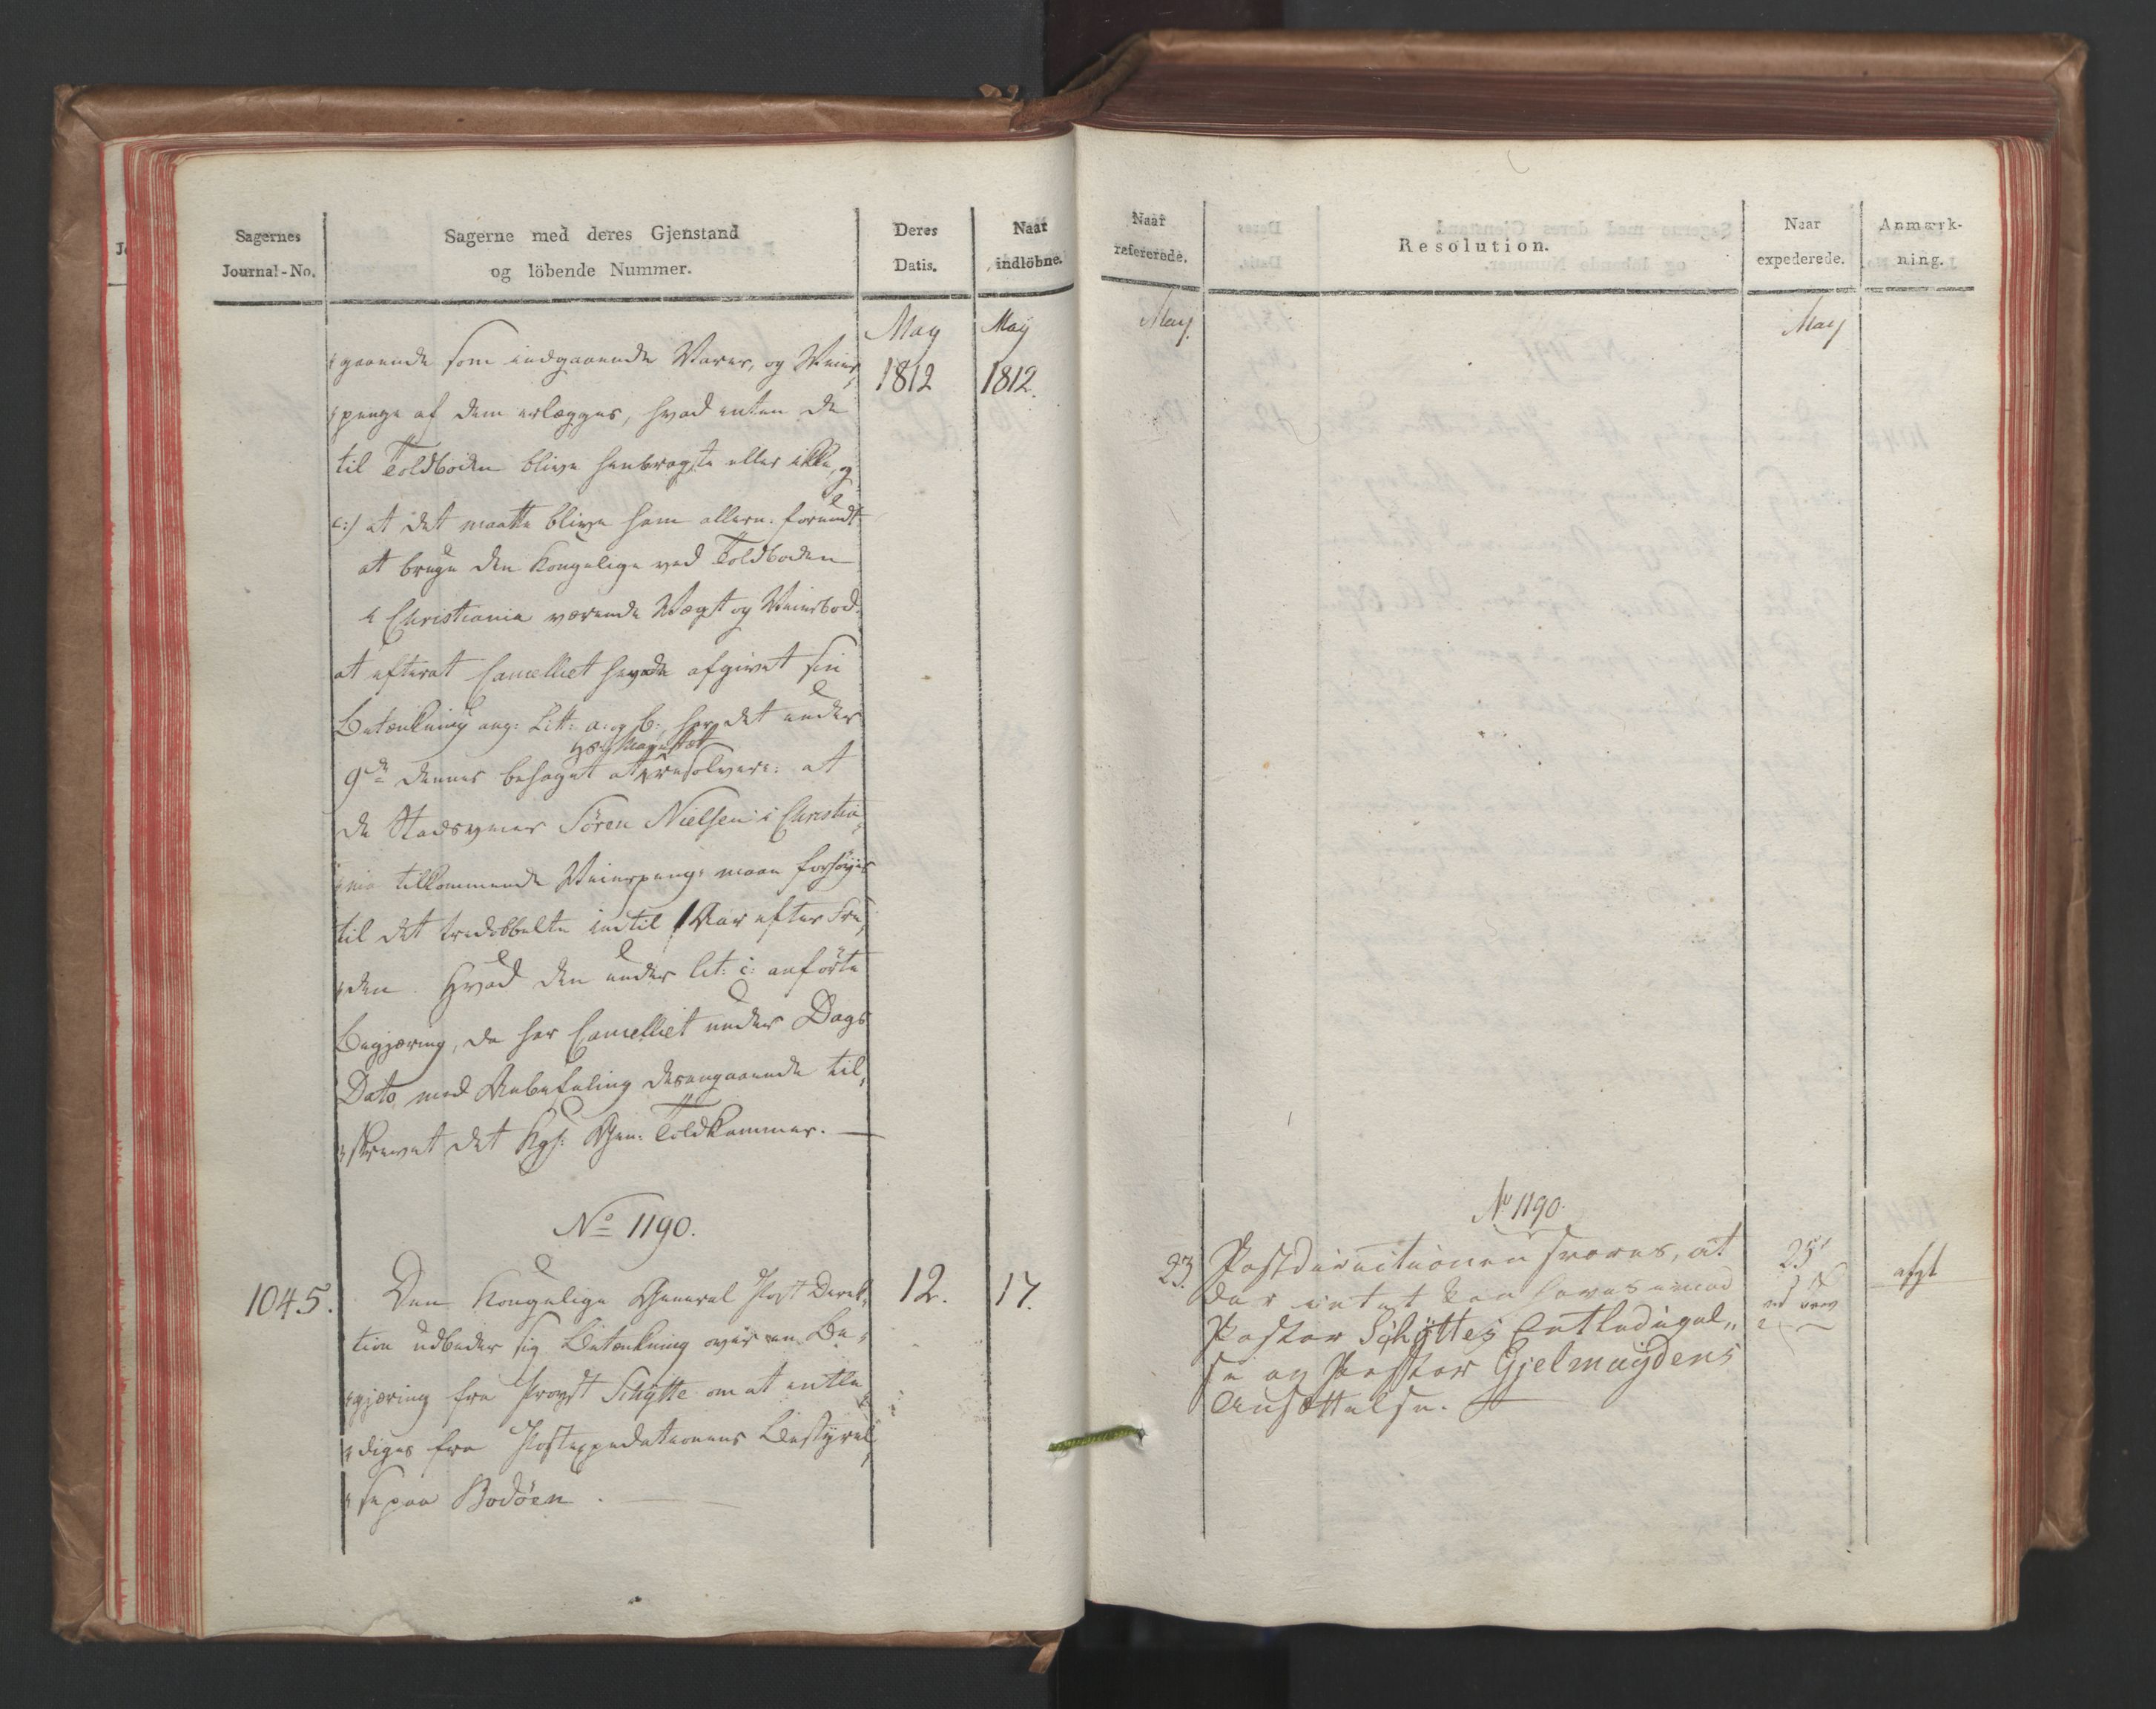 Sagernes
Journal-No.
Sagerne med deres Gjenstand
og löbende Nummer.
Deres
Datis.
Naar
indlöbne.
May
1812
May
1812.
gaaende som indgaaende Varer, og Veier
penge af dem erlægges, hvad enten de
til Toldboden blive henbragte eller ikke, og
c:) at det maatte blive ham allern. forundt
at bruge den Kongelige ved Toldboden
i Christiania værende Vægt og Veierbod.
at efterat Cancelliet havde afgivet sin
Betænkning ang: Litt: a: og b:, har det under
Hs: Majestæt
9de dennes behaget at resolvere: at
de Stadsveier Sören Nielsen i Christia,
nia tilkommende Veierpenge maae forhöyes
til det tredobbelte indtil 1 Aar efter Fre,
den. Hvad den under lit: c: anförte
Begjæring, da har Cancelliet under Dags
Dato med Anbefaling desangaaende til,
skrevet det Kgl: Gen: Toldkammer. —
No 1190.
1045.
Den Kongelige General Post Direk,
tion udbeder sig Betænkning over en Be,
gjæring fra Provst Schytte om at entle
diges fra Postexpeditionens Bestyrel,
se paa Bodöen. —
12.
17.
Naar
refererede.
Resolution.
Naar
expederede.
Anmærk-
ning.
May.
May
No 1190.
23.
Postdirectionen svares, at
der intet kan haves imod
Pastor Schyttes Entledigel,,
se og Pastor Gjelmuydens
Ansættelse.
25
afgl